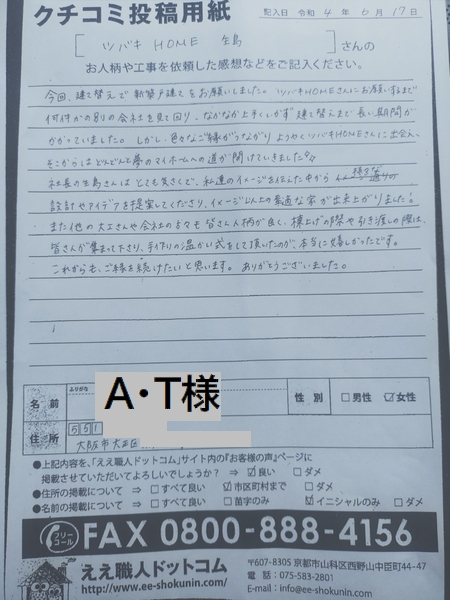 クチコミ投稿用紙
記入日 令和 4 年 6 月 17 日
ツバキ HOME 生島 さんの
お人柄や工事を依頼した感想などをご記入ください。
今回、建て替えで新築戸建てをお願いしました。ツバキHOMEさんにお願いするまで
何件かの別の会社を見て回り、なかなか上手くいかず建て替えまで長い期間が
かかっていました。しかし、色々なご縁がつながり ようやくツバキHOMEさんに出会え、
そこからはとんとんと夢のマイホームへの道が開けていきました☆
社長の生島さんはとても気さくで、私達のイメージを伝えた中から
設計やアイデアを提案してくださり、イメージ以上の素適な家が出来上がりました!
また他の大工さんや会社の方々も皆さん人柄が良く、棟上げの際や引き渡しの際は、
皆さんが集まって下さり、手作りの温かい式をして頂いたのが、本当に嬉しかったです。
これからも、ご縁を続けたいと思います。ありがとうございました。
ふりがな
名 前 A・T様 性 別 □男性 ☑女性
住 所 551
大阪市大正区
●上記内容を、「ええ職人ドットコム」サイト内の『お客様の声』ページに
掲載させていただいてよろしいでしょうか? ⇒ ☑良い □ダメ
●住所の掲載について ⇒ □すべて良い ☑市区町村まで □ダメ
●名前の掲載について ⇒ □すべて良い □苗字のみ ☑イニシャルのみ □ダメ
フリーコール FAX 0800-888-4156
ええ職人ドットコム
http://www.ee-shokunin.com/
〒607-8305 京都市山科区西野山中臣町44-47
電 話:075-583-2801
E-mail:info@ee-shokunin.com